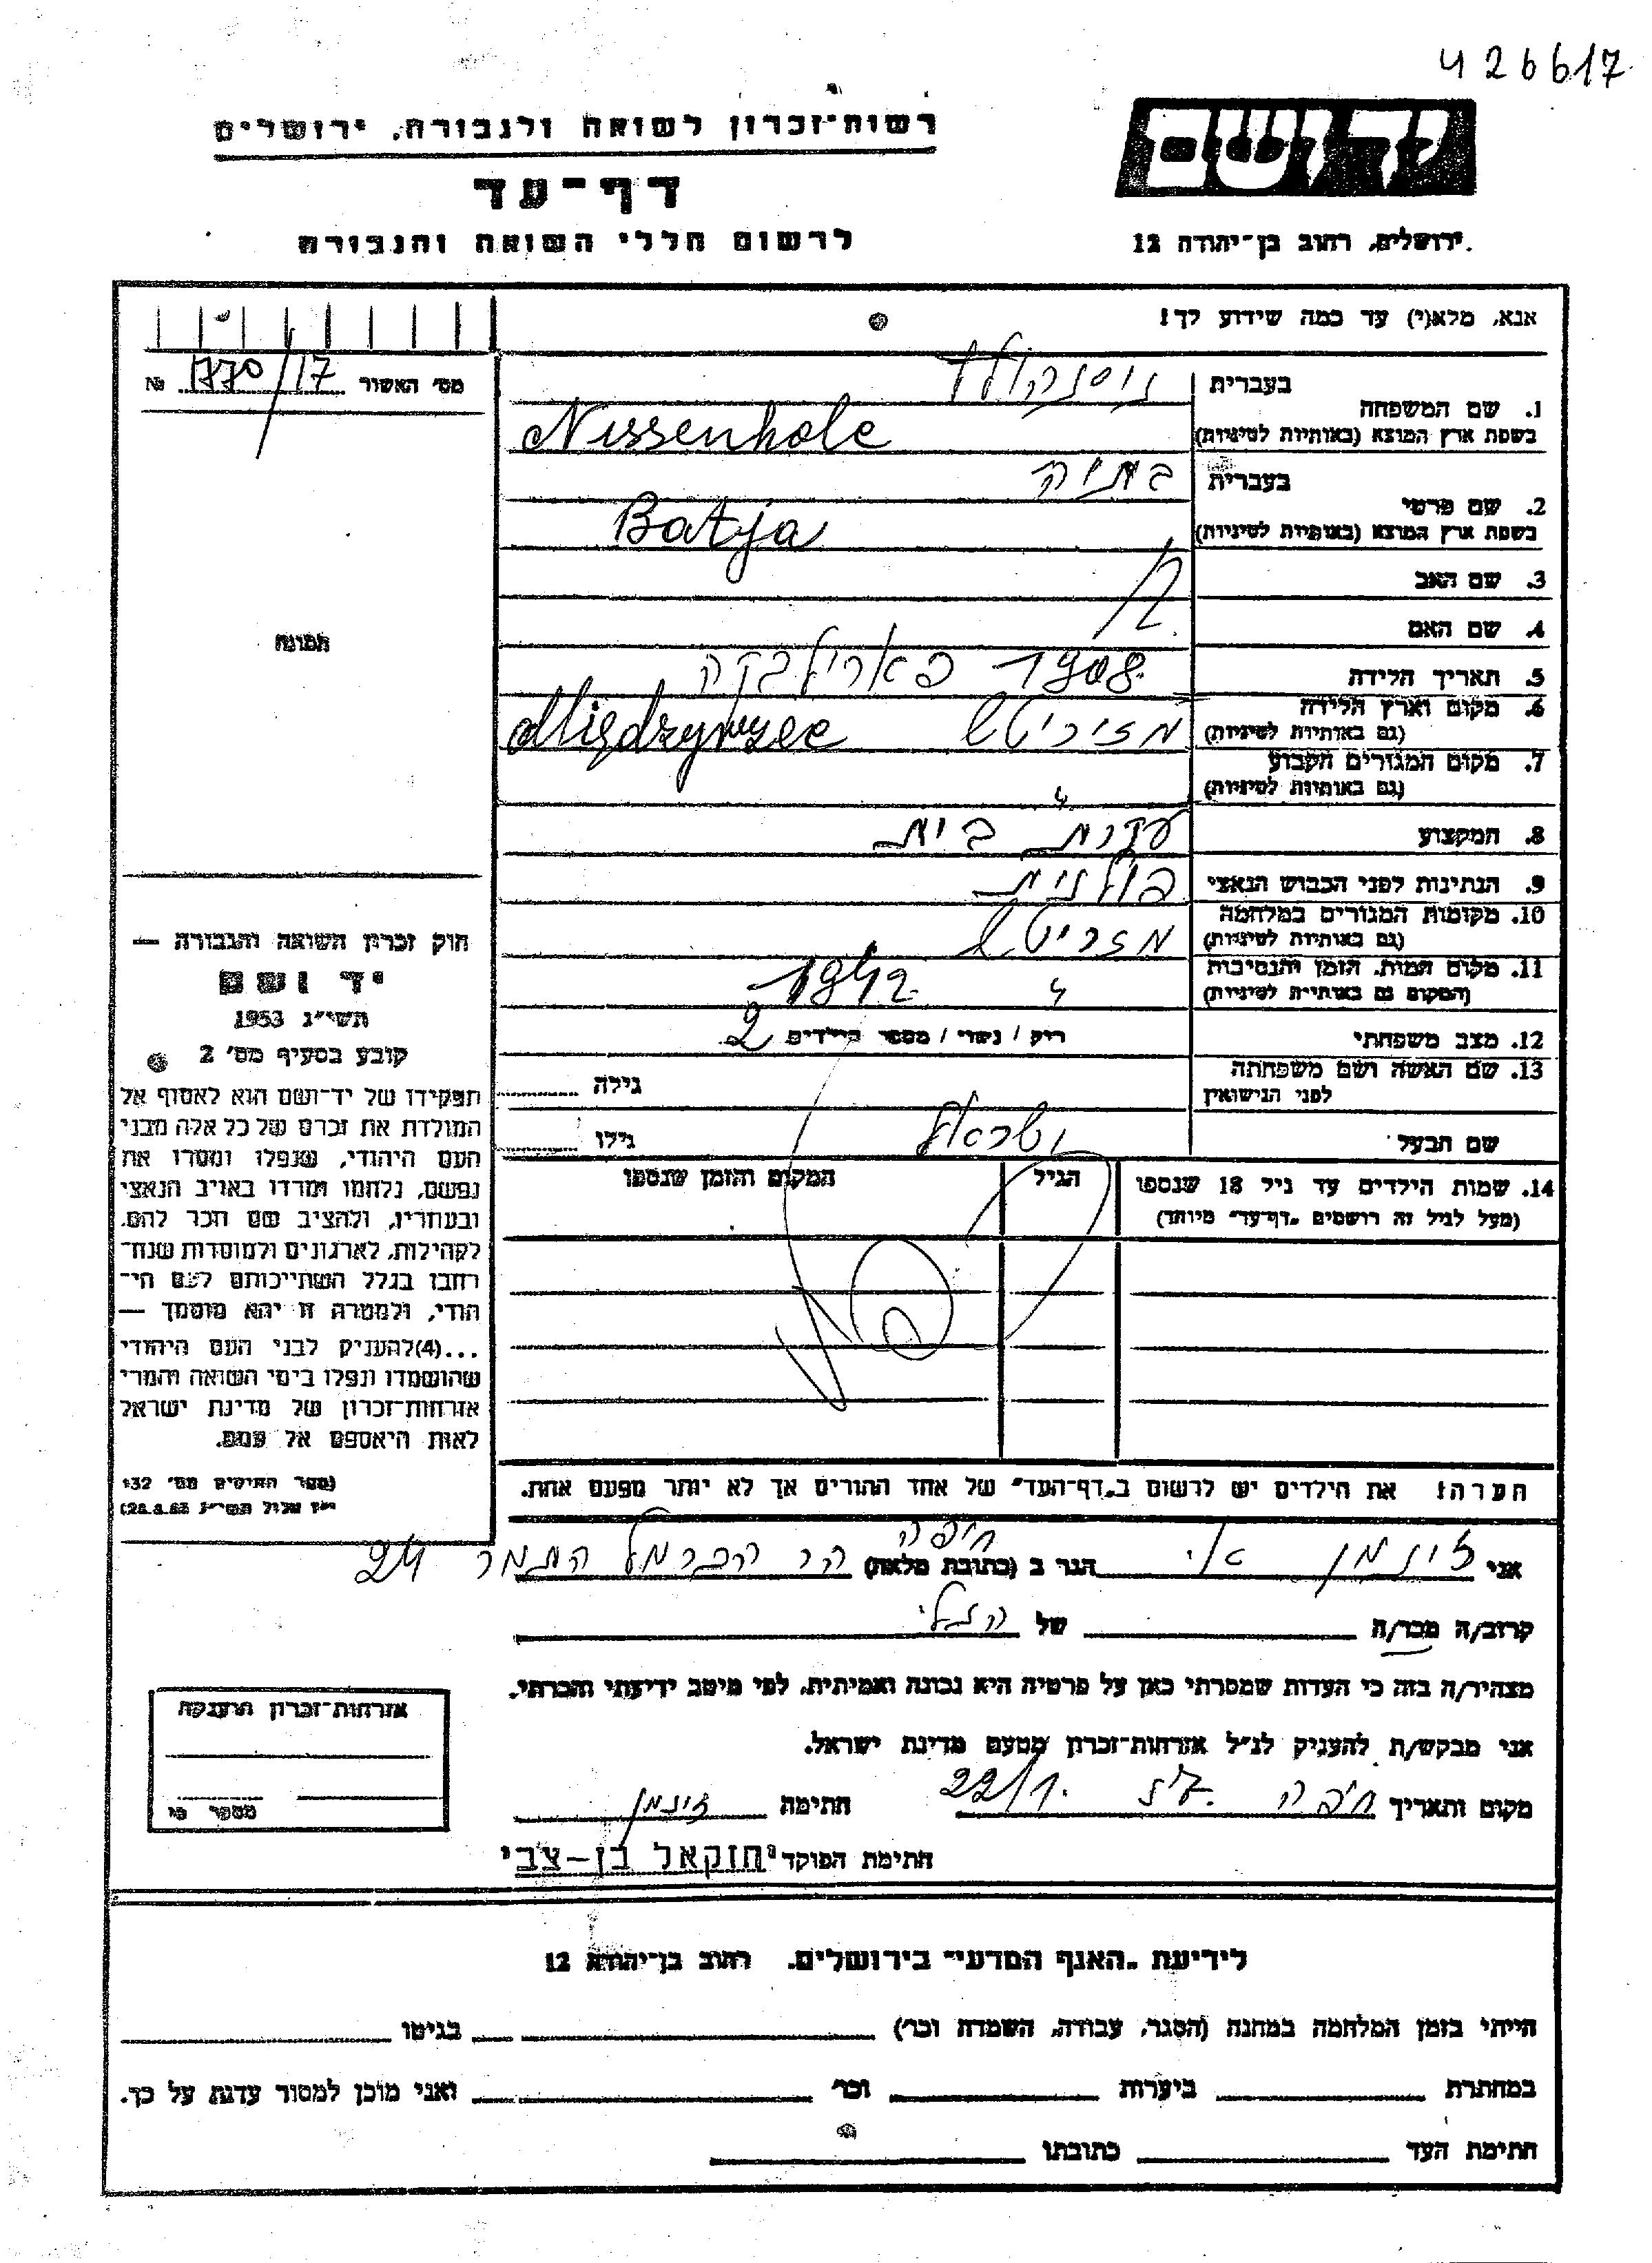 426617
רשות־זכרון לשואה ולגבורה, ירושלים
יד ושם
דף־עד
לרשום חללי השואה והגבורה
ירושלים, רחוב בן־יהודה 12
אנא, מלא(י) עד כמה שידוע לך!
מס' האשור 1770/17 №
בעברית
1. שם המשפחה
בשפת ארץ המוצא (באותיות לטיניות) Nissenhole
בעברית בתיה
2. שם פרטי
בשפת ארץ המוצא (באותיות לטיניות) Batja
3. שם האב
4. שם האם
תמונה
5. תאריך הלידה 1908
6. מקום וארץ הלידה
(גם באותיות לטיניות) מזריטש
7. מקום המגורים הקבוע
(גם באותיות לטיניות) "
8. המקצוע עקרת בית
9. הנתינות לפני הכבוש הנאצי פולנית
10. מקומות המגורים במלחמה
(גם באותיות לטיניות) מזריטש
11. מקום המות, הזמן והנסיבות
(המקום גם באותיות לטיניות) " 1942
12. מצב משפחתי רוק / נשוי / מספר הילדים 2
13. שם האשה ושם משפחתה
לפני הנישואין גילה
שם הבעל ישראל גילו
14. שמות הילדים עד גיל 18 שנספו הגיל המקום והזמן שנספו
(מעל לגיל זה רושמים "דף־עד" מיוחד)
חוק זכרון השואה והגבורה —
יד ושם
תשי"ג 1953
קובע בסעיף מס' 2
תפקידו של יד־ושם הוא לאסוף אל
המולדת את זכרם של כל אלה מבני
העם היהודי, שנפלו ומסרו את
נפשם, נלחמו ומרדו באויב הנאצי
ובעוזריו, ולהציב שם וזכר להם,
לקהילות, לארגונים ולמוסדות שנח־
רבו בגלל השתייכותם לעם הי־
הודי, ולמטרה זו יהא מוסמך —
...(4) להעניק לבני העם היהודי
שהושמדו ונפלו בימי השואה והמרי
אזרחות־זכרון של מדינת ישראל
לאות היאספם אל עמם.
(ספר החוקים מס' 132
י"ז אלול תשי"ג 28.8.53)
הערה! את הילדים יש לרשום ב"דף־העד" של אחד ההורים אך לא יותר מפעם אחת.
חיפה
אני זוגמן הגר ב (כתובת מלאה) הר הכרמל התמר 24
קרוב/ה מכר/ה של הנ"ל
מצהיר/ה בזה כי העדות שמסרתי כאן על פרטיה היא נכונה ואמיתית, לפי מיטב ידיעתי והכרתי.
אני מבקש/ת להעניק לנ"ל אזרחות־זכרון מטעם מדינת ישראל.
מקום ותאריך חיפה 22/1 חתימה זוגמן
חתימת הפוקד יחזקאל בן-צבי
אזרחות־זכרון הוענקה
מספר כי
לידיעת "האגף המדעי" בירושלים, רחוב בן־יהודה 12
הייתי בזמן המלחמה במחנה (הסגר, עבודה, השמדה וכו') בגיטו
במחתרת ביערות וכו' ואני מוכן למסור עדות על כך.
חתימת העד כתובתו